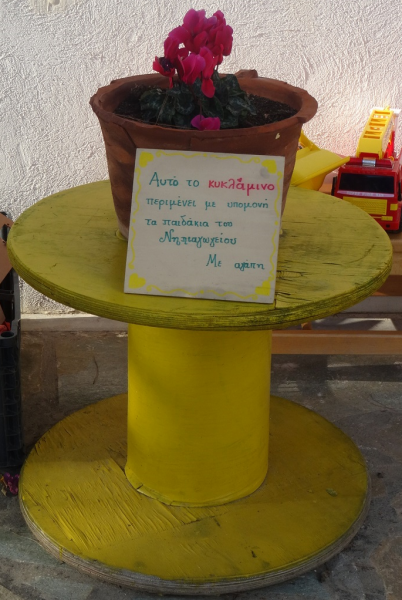 Αυτό το κυκλάμινο
περιμένει με υπομονή
τα παιδάκια του
Νηπιαγωγείου
Με αγάπη